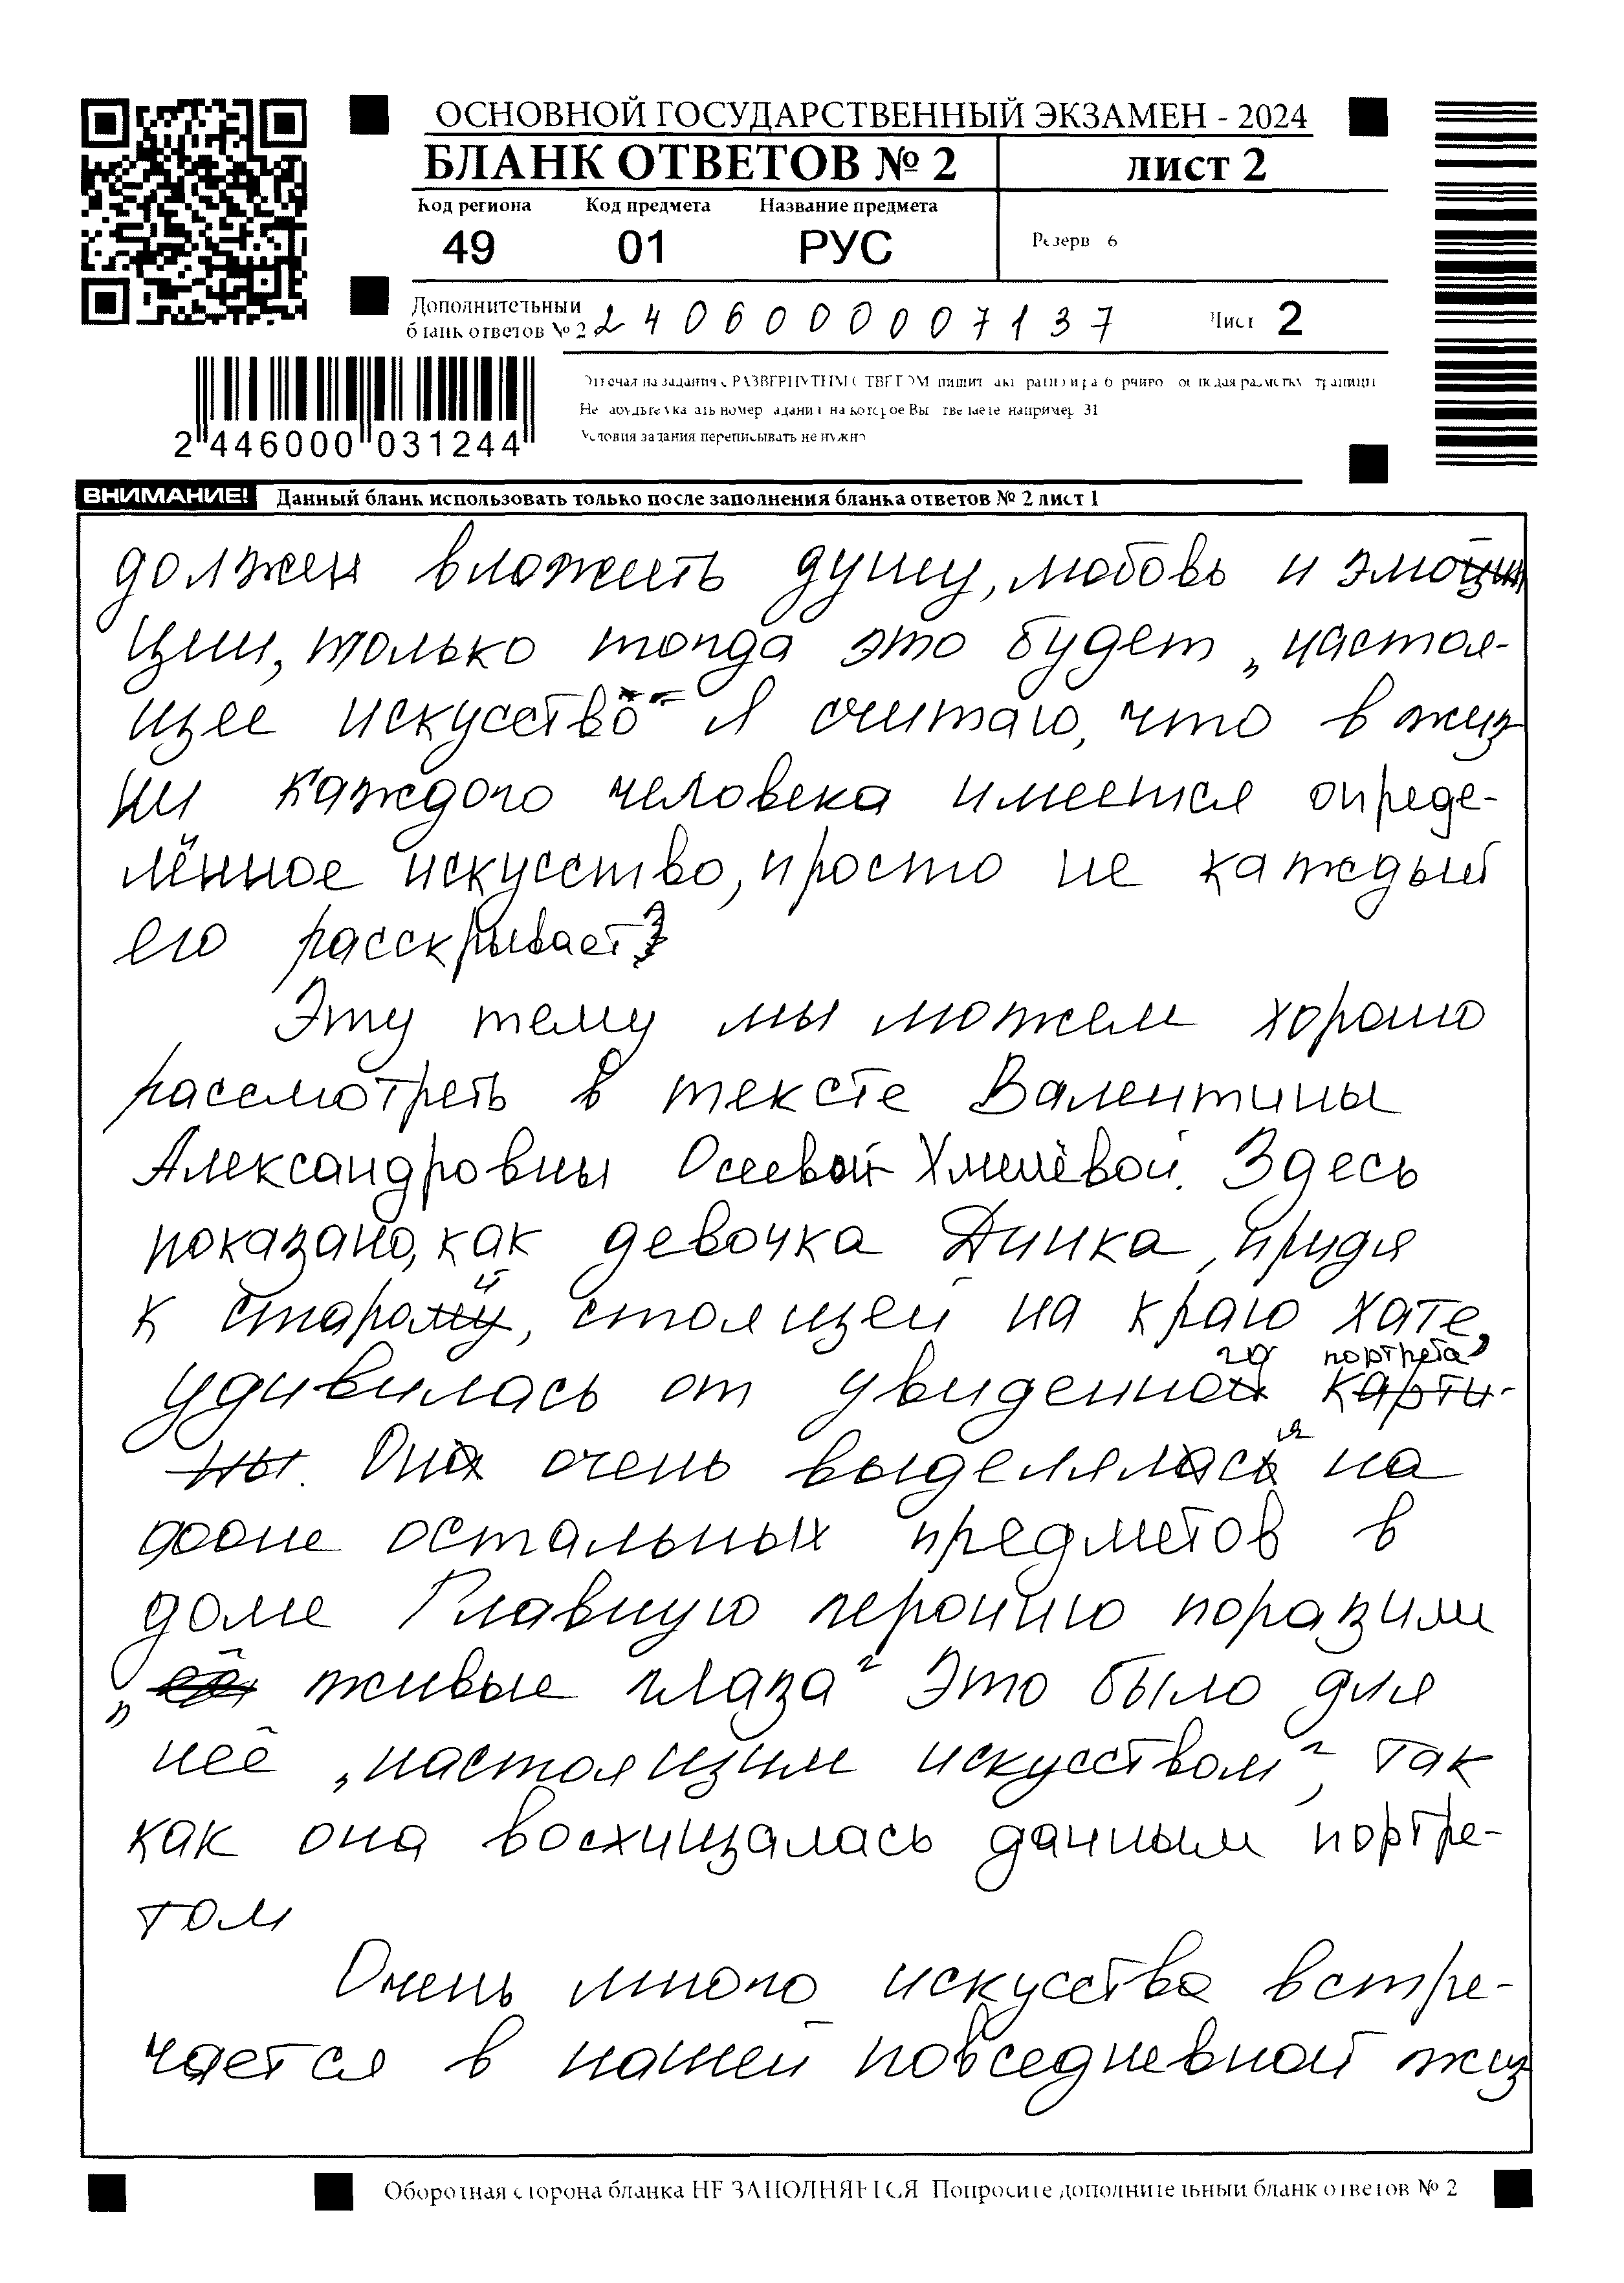 ОСНОВНОЙ ГОСУДАРСТВЕННЫЙ ЭКЗАМЕН - 2024
БЛАНК ОТВЕТОВ № 2
лист 2
Код региона Код предмета Название предмета
49 01 РУС
Резерв 6
Дополнительный
бланк ответов № 2 2406000007137
Лист 2
2 446000 031244
Условия задания переписывать не нужно
ВНИМАНИЕ! Данный бланк использовать только после заполнения бланка ответов № 2 лист 1
должен вложить душу, любовь и эмо
ции, только тогда это будет „настоя-
щее искусство" Я считаю, что в жиз
ни каждого человека имеется опреде-
лённое искусство, просто не каждый
его расскрывает
Эту тему мы можем хорошо
рассмотреть в тексте Валентины
Александровны Осеевой Хмелёвой. Здесь
показано, как девочка Динка, придя
к старой, стоящей на краю хате,
удивилась от увиденного портрета
Он очень выделялся на
фоне остальных предметов в
доме Главную героиню поразили
„живые глаза" Это было для
неё „настоящим искусством", так
как она восхищалась данным портре-
том
Очень много искусства встре-
чается в нашей повседневной жиз
Оборотная сторона бланка НЕ ЗАПОЛНЯЕТСЯ Попросите дополнительный бланк ответов № 2